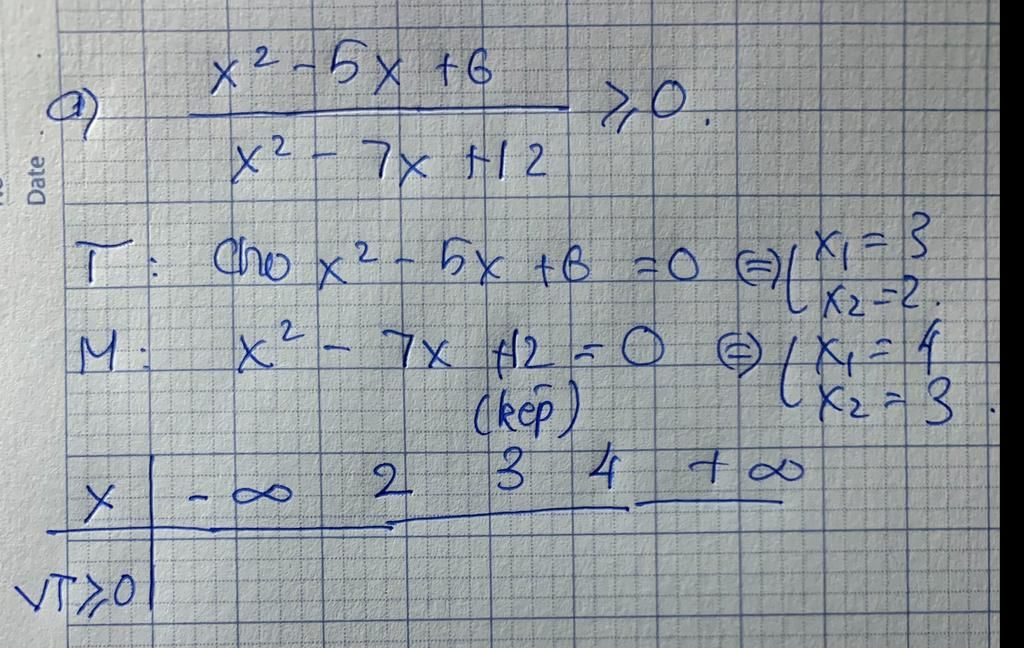 Date
a) x² - 5x + 6 / x² - 7x + 12 ⩾ 0.
T: Cho x² - 5x + 6 = 0 ⇔ [ x₁ = 3
x₂ = 2.
M: x² - 7x + 12 = 0 ⇔ [ x₁ = 4
x₂ = 3.
(kép)
x | - ∞ 2 3 4 + ∞
VT ⩾ 0